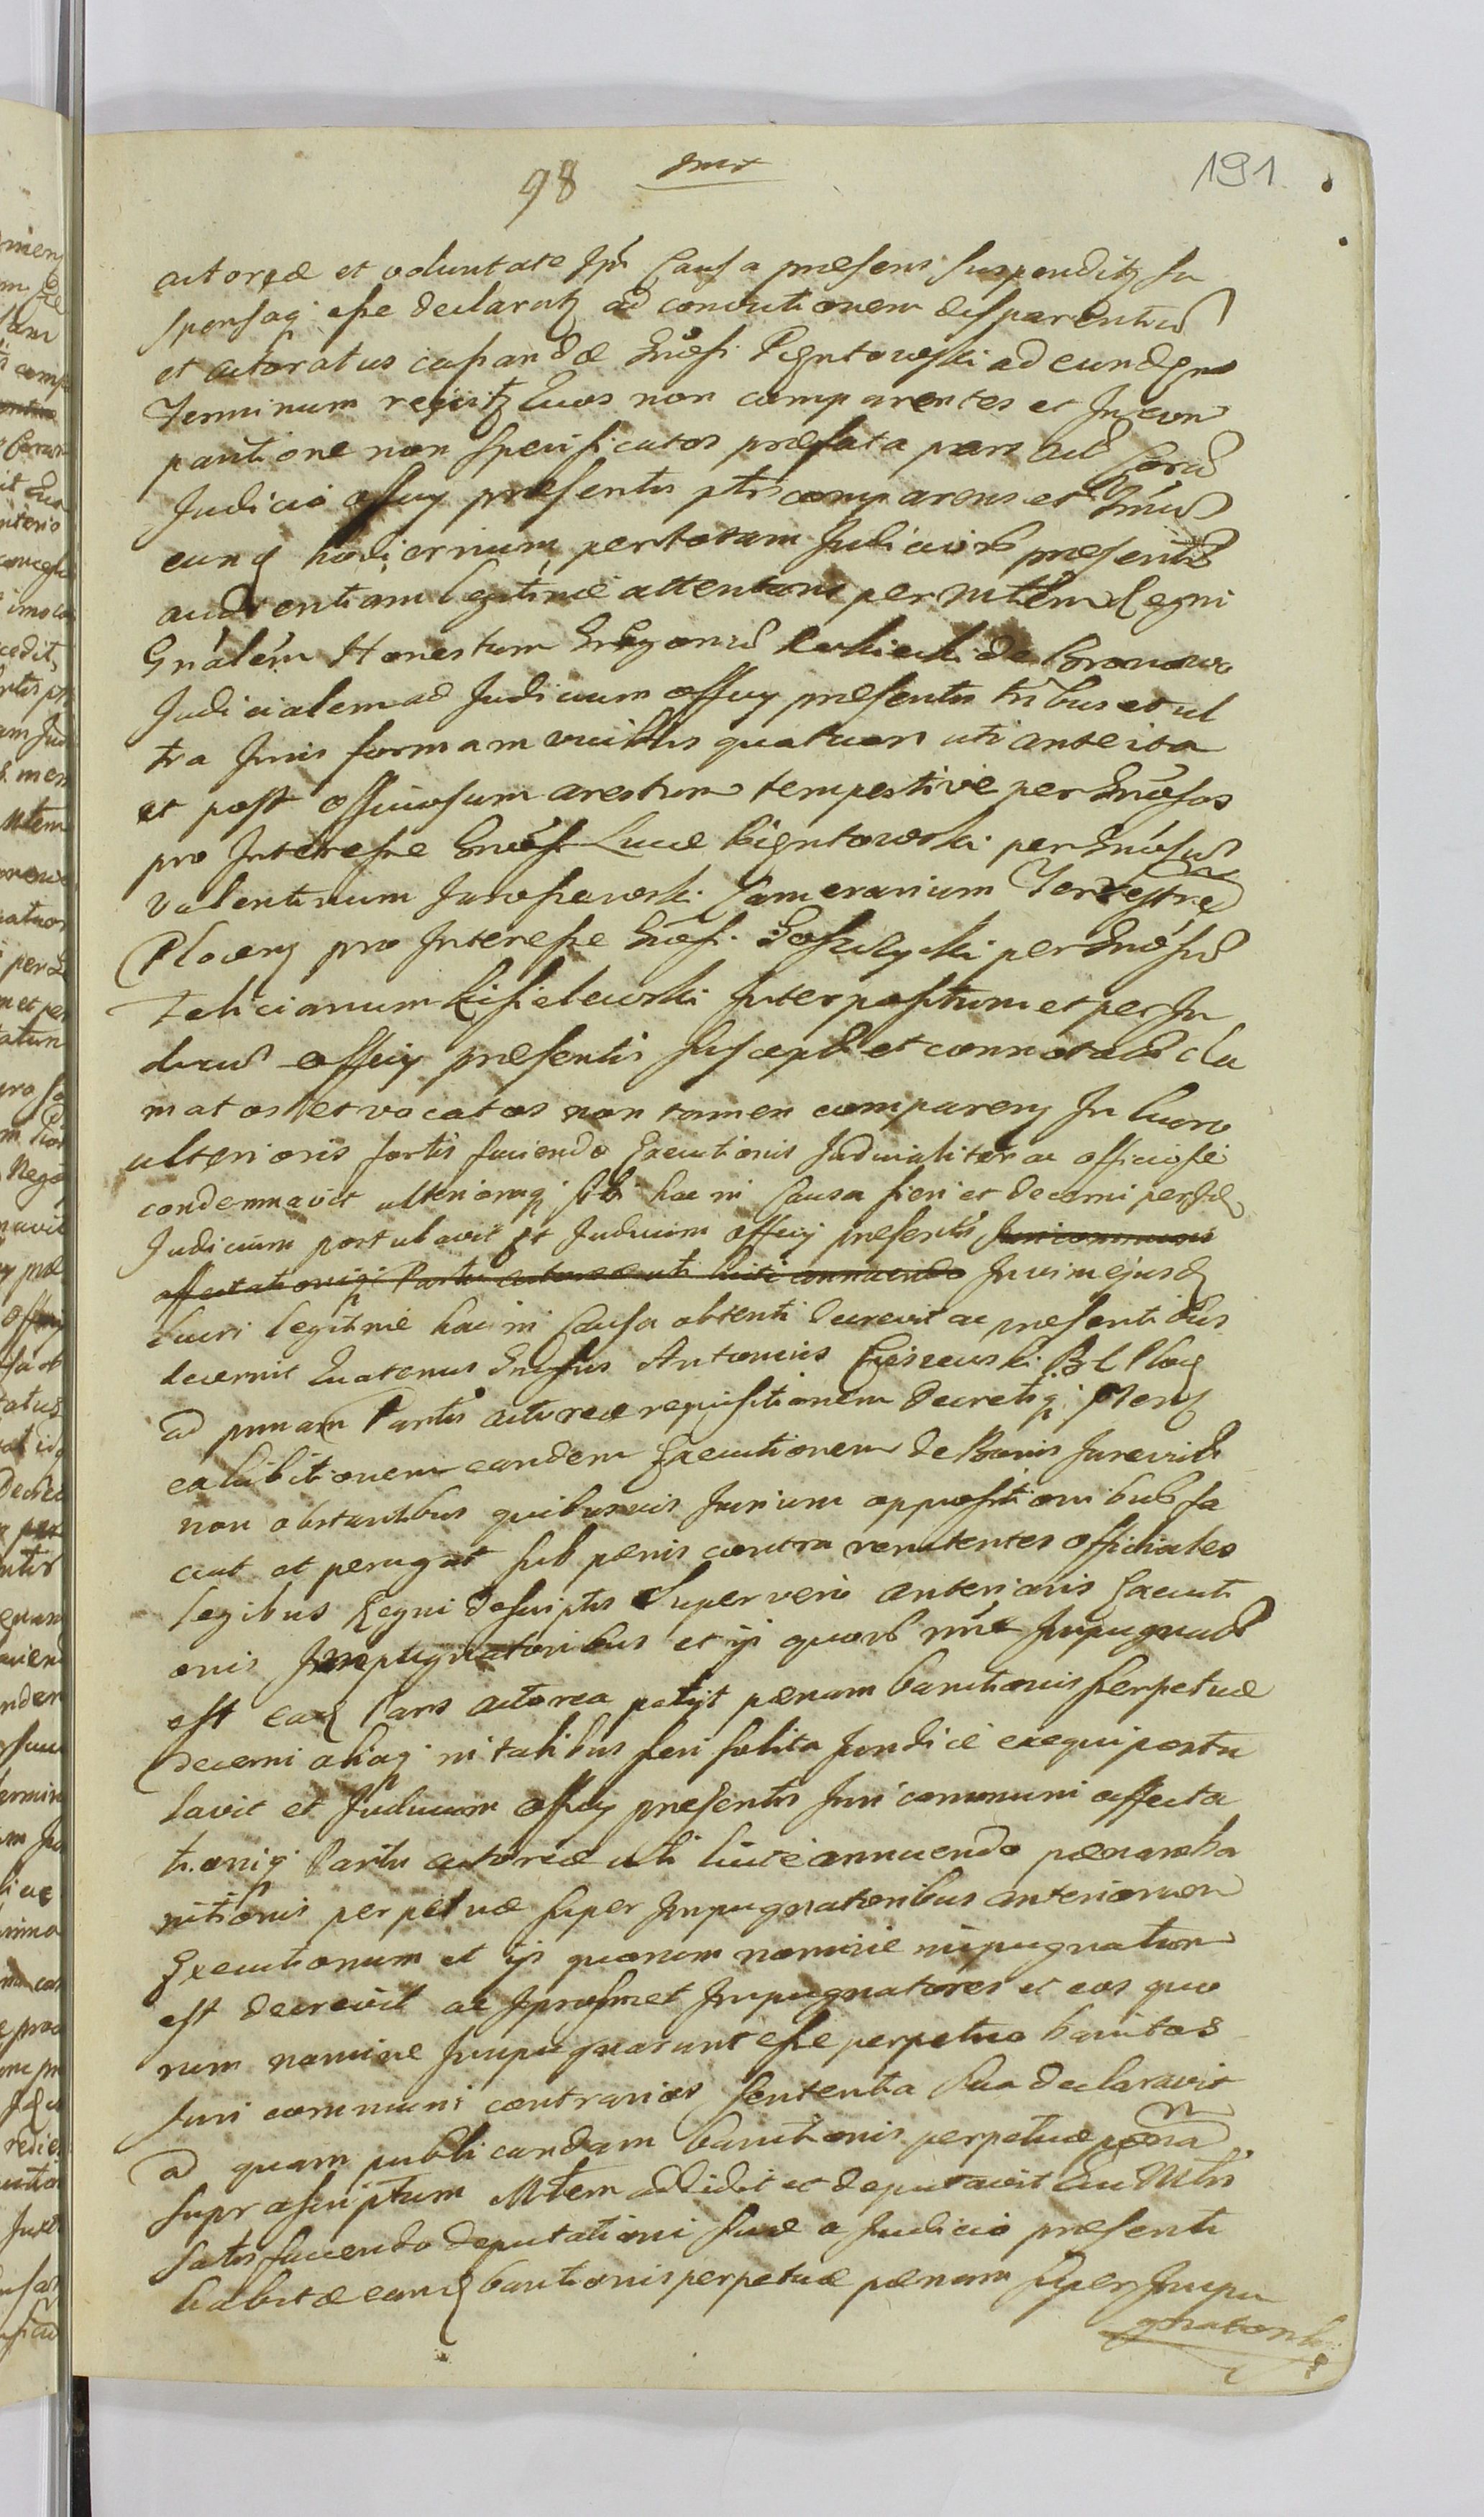 98
191
actoreæ et voluntate Causa præsens suspenditz su
spensaq esse declaratz ad convictionem disparentiu
et actoratus cassandæ Pigntowski ad eund
Terminum non comparentes et In
pautione non specificatos præfata pars Act Cora
Judicio officy præsentis ptr comparens et
eunq hodiernum per totam Judiciorb præsentib
audientiam legitime attentans per mtem Regni
Gnálem Honestum de Coronowo
Judicialem ad Judicium officy præsentis tribus et ul
tra Juris formam vicibus quatuor uti ante ita
et post officiosum arestum tempestive per Gnosos
pro Interesse Gnosi Lucæ Pigntowski per Gnosu
Valentinum Jarossewski Camerarium Terrestre
Plocen pro Interesse Gnosi per Gnosu
Felicianum Kisielewski Interpositum et per Ju
diciu officy præsentis suscept et connotat cla
matos et vocatos non tamen comparen In lucro
ulterioris fortis faciendæ Executionis Judicialiter ac officiose
condemnavit ulterioraq sibi hac in Causa fieri et decerni per Jd
Judicium postulavit Et Judicium officy præsentis Juri communi
affectationiq Partis actoreæ uti licite annuendo In vim ejusd
lucri legitime hac in Causa obtenti decrevit ac præsentibus
decernit Quatenus Gnosus Antonius B C Ploc
ad primam Partis actoreæ requisitionem Decretiq præsen
exhibitionem eandem Executionem de Bonis
non obstantibus quibusvis Jurium oppositionibus fa
ciat et peragat sub pænis contra renitentes officiales
legibus Regni descriptis Super vero anterioris Executi
onis Impugnatoribus et ijs quorb nne Impugnat
est ead Pars actorea petijt pænam bannitionis perpetuæ
decerni aliaq in talibus fieri solita Juridice exequi postu
lavit et Judicium officy præsentis Juri communi affecta
tioniq Partis actoreæ uti licite annuendo pænam ba
nitionis perpetuæ super Impugnatoribus anteriorum
Executionum et ijs quorum nomine impugnatum
est decrevit ac Ipsosmet Impugnatores et eos quo
rum nomine Impugnarunt esse perpetuo banitos
Juri communi contrarios sententia sua declaravit
ad quam publicandam banitionis perpetuæ pæna
suprascriptum Mtem addidit et deputavit Qui Mtris
satisfaciendo deputationi suæ a Judicio præsenti
habitæ eand banitionis perpetuæ pænam super Impu
gnatorib